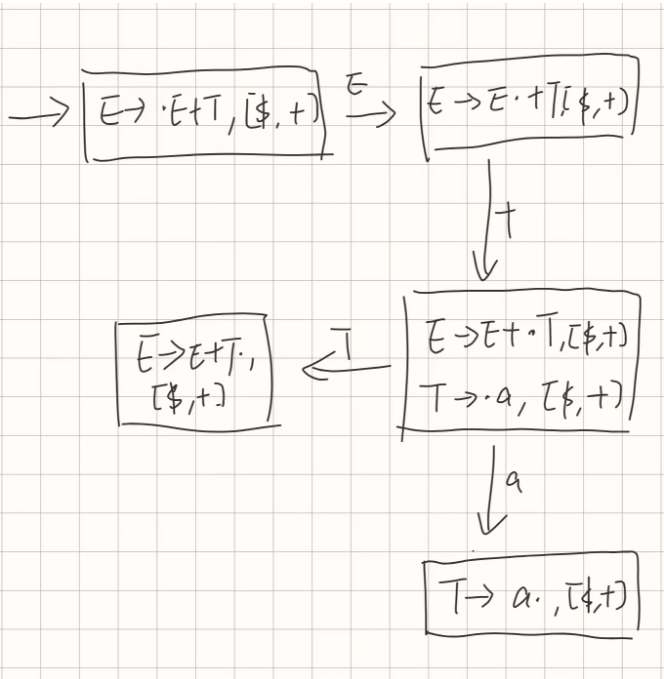 E→·E+T, [$, +]
E
E→E·+T,[$,+]
+
E→E+·T,[$,+]
T→·a, [$,+]
T
E→E+T·,
[$,+]
a
T→ a·, [$,+]